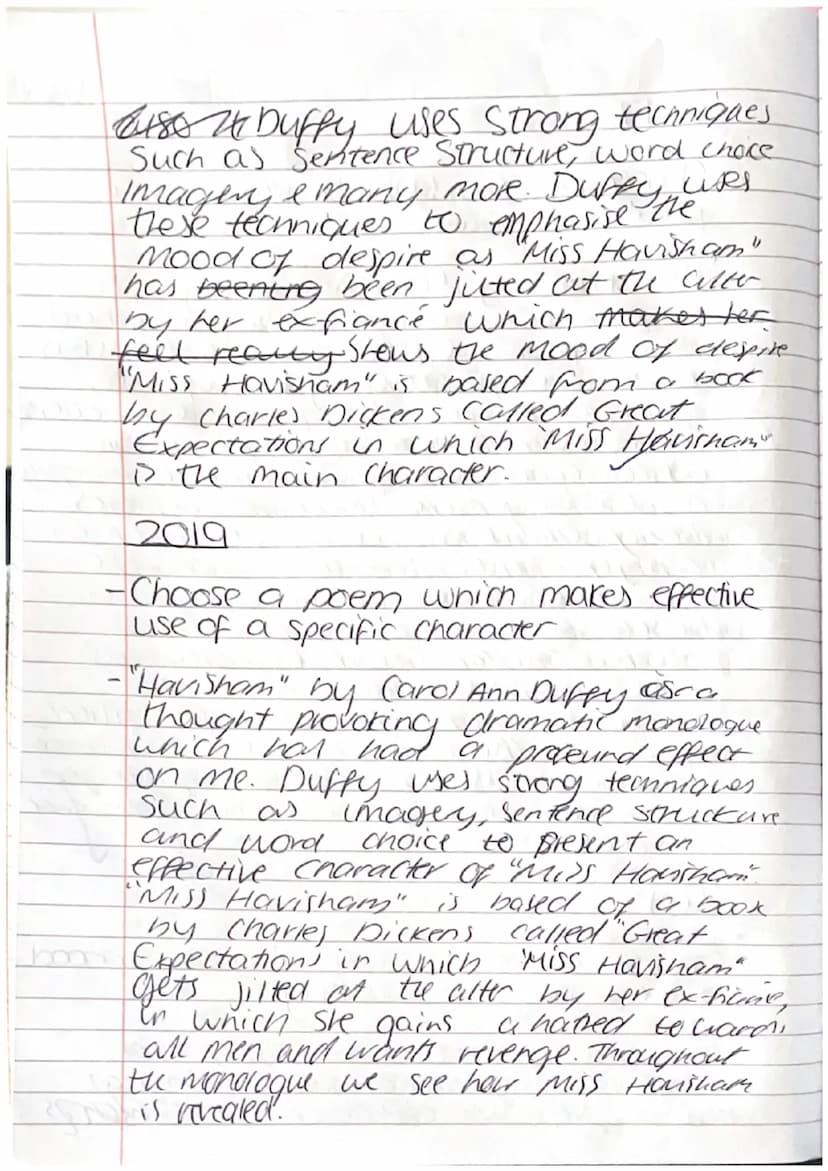 Duffy uses strong techniques
such as sentence structure, word choice
imagery & many more. Duffy uses
these techniques to emphasise the
mood of despire as "Miss Havisham"
has beentrg been jilted at the alter
by her ex-fiancé which makes her
feel really shows the mood of despire
"Miss Havisham" is based from a book
by Charles Dickens called Great
Expectations in which "Miss Havisham"
is the main character.
2019
- Choose a poem which makes effective
use of a specific character
- "Havisham" by Carol Ann Duffy is a
thought provoking dramatic monologue
which has had a profound effect
on me. Duffy uses strong techniques
such as imagery, sentence structure
and word choice to present an
effective character of "Miss Havisham".
"Miss Havisham" is based of a book
by Charles Dickens called "Great
Expectations in which "Miss Havisham"
gets jilted at the alter by her ex-fiance,
in which she gains a hatred towards
all men and wants revenge. Throughout
the monologue we see how Miss Havisham
is revealed.